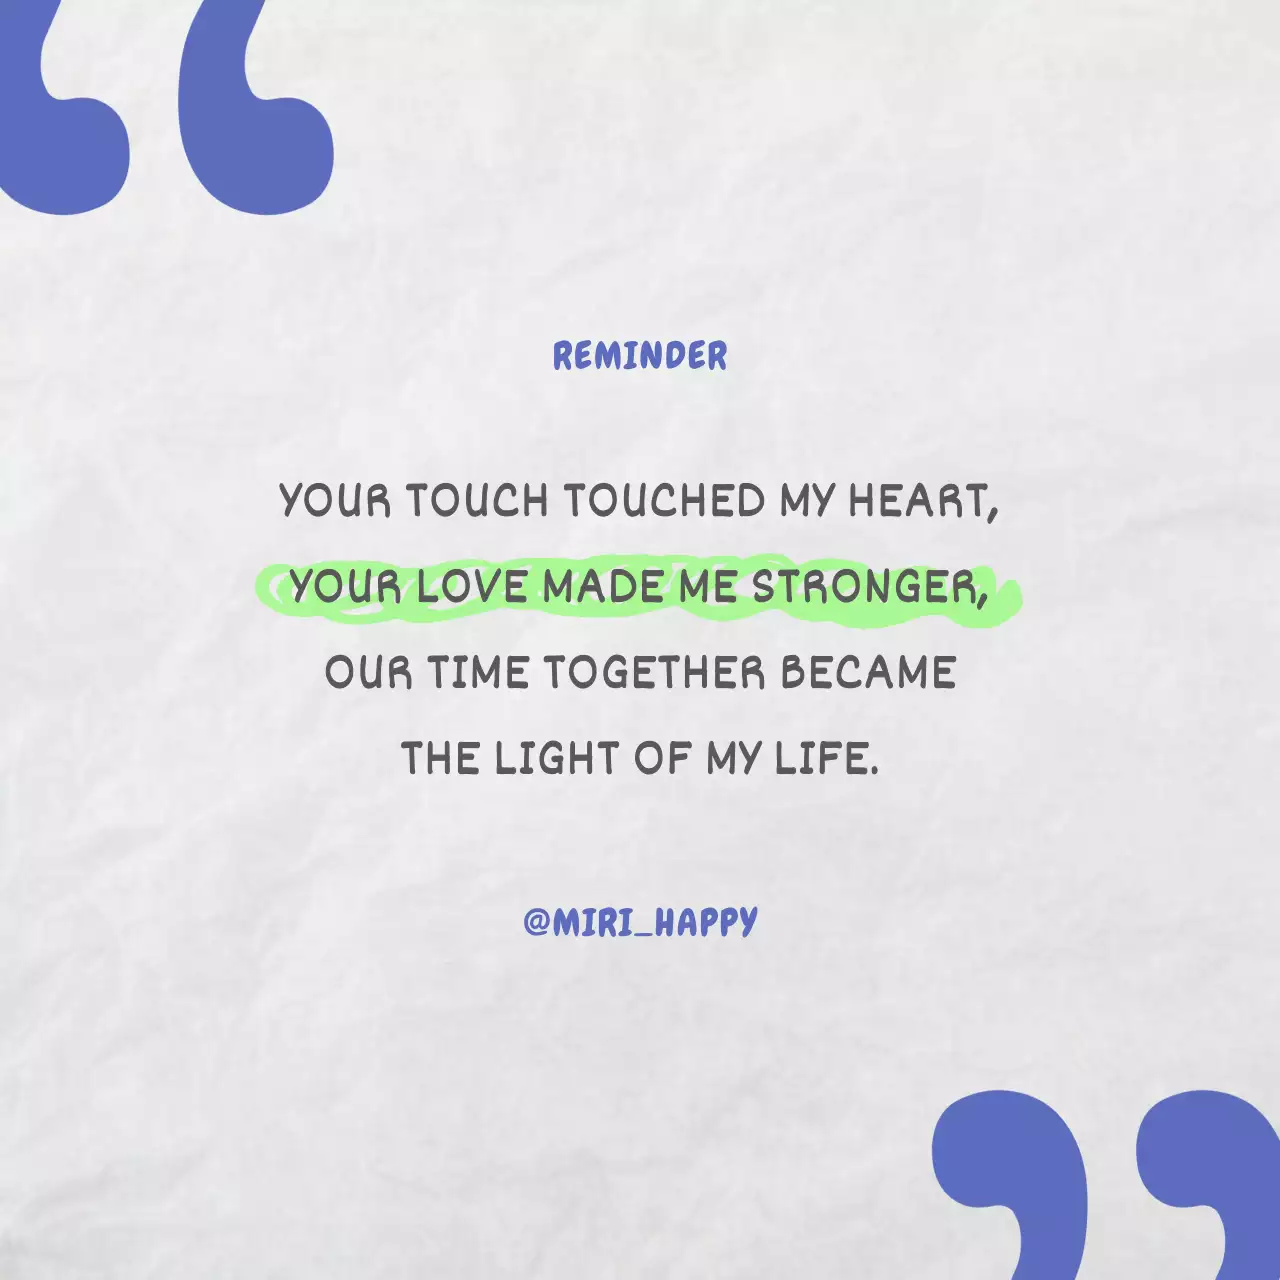 REMINDER
YOUR TOUCH TOUCHED MY HEART,
YOUR LOVE MADE ME STRONGER,
OUR TIME TOGETHER BECAME
THE LIGHT OF MY LIFE.
@MIRI_HAPPY